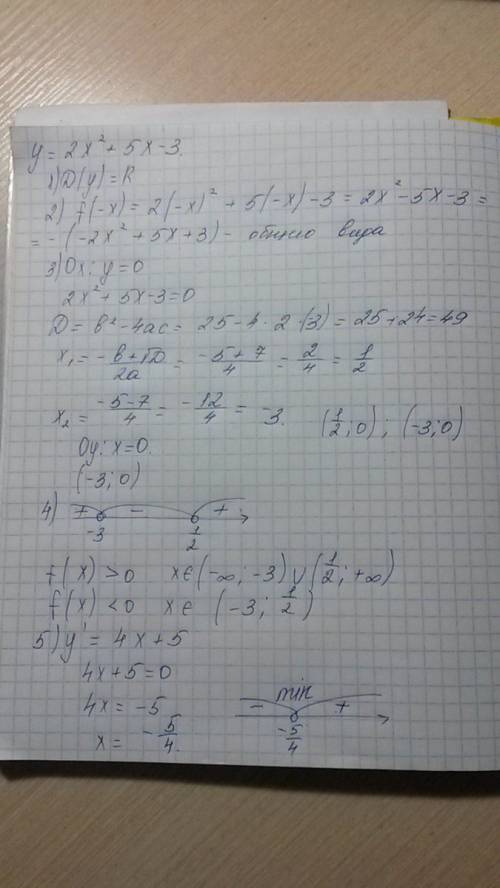 y = 2x² + 5x - 3.
1) D(y) = R
2) f(-x) = 2(-x)² + 5(-x) - 3 = 2x² - 5x - 3 =
= -(-2x² + 5x + 3) - общего вида
3) Ox: y = 0
2x² + 5x - 3 = 0
D = b² - 4ac = 25 - 4 · 2 · (-3) = 25 + 24 = 49
x₁ = -b + √D / 2a = -5 + 7 / 4 = 2/4 = 1/2
x₂ = -5 - 7 / 4 = -12/4 = -3. (1/2; 0); (-3; 0)
Oy: x = 0.
(-3; 0)
4) + - +
-3 1/2
f(x) > 0 x ∈ (-∞; -3) ∪ (1/2; +∞)
f(x) < 0 x ∈ (-3; 1/2)
5) y' = 4x + 5
4x + 5 = 0
4x = -5
x = -5/4.
min
- +
-5/4